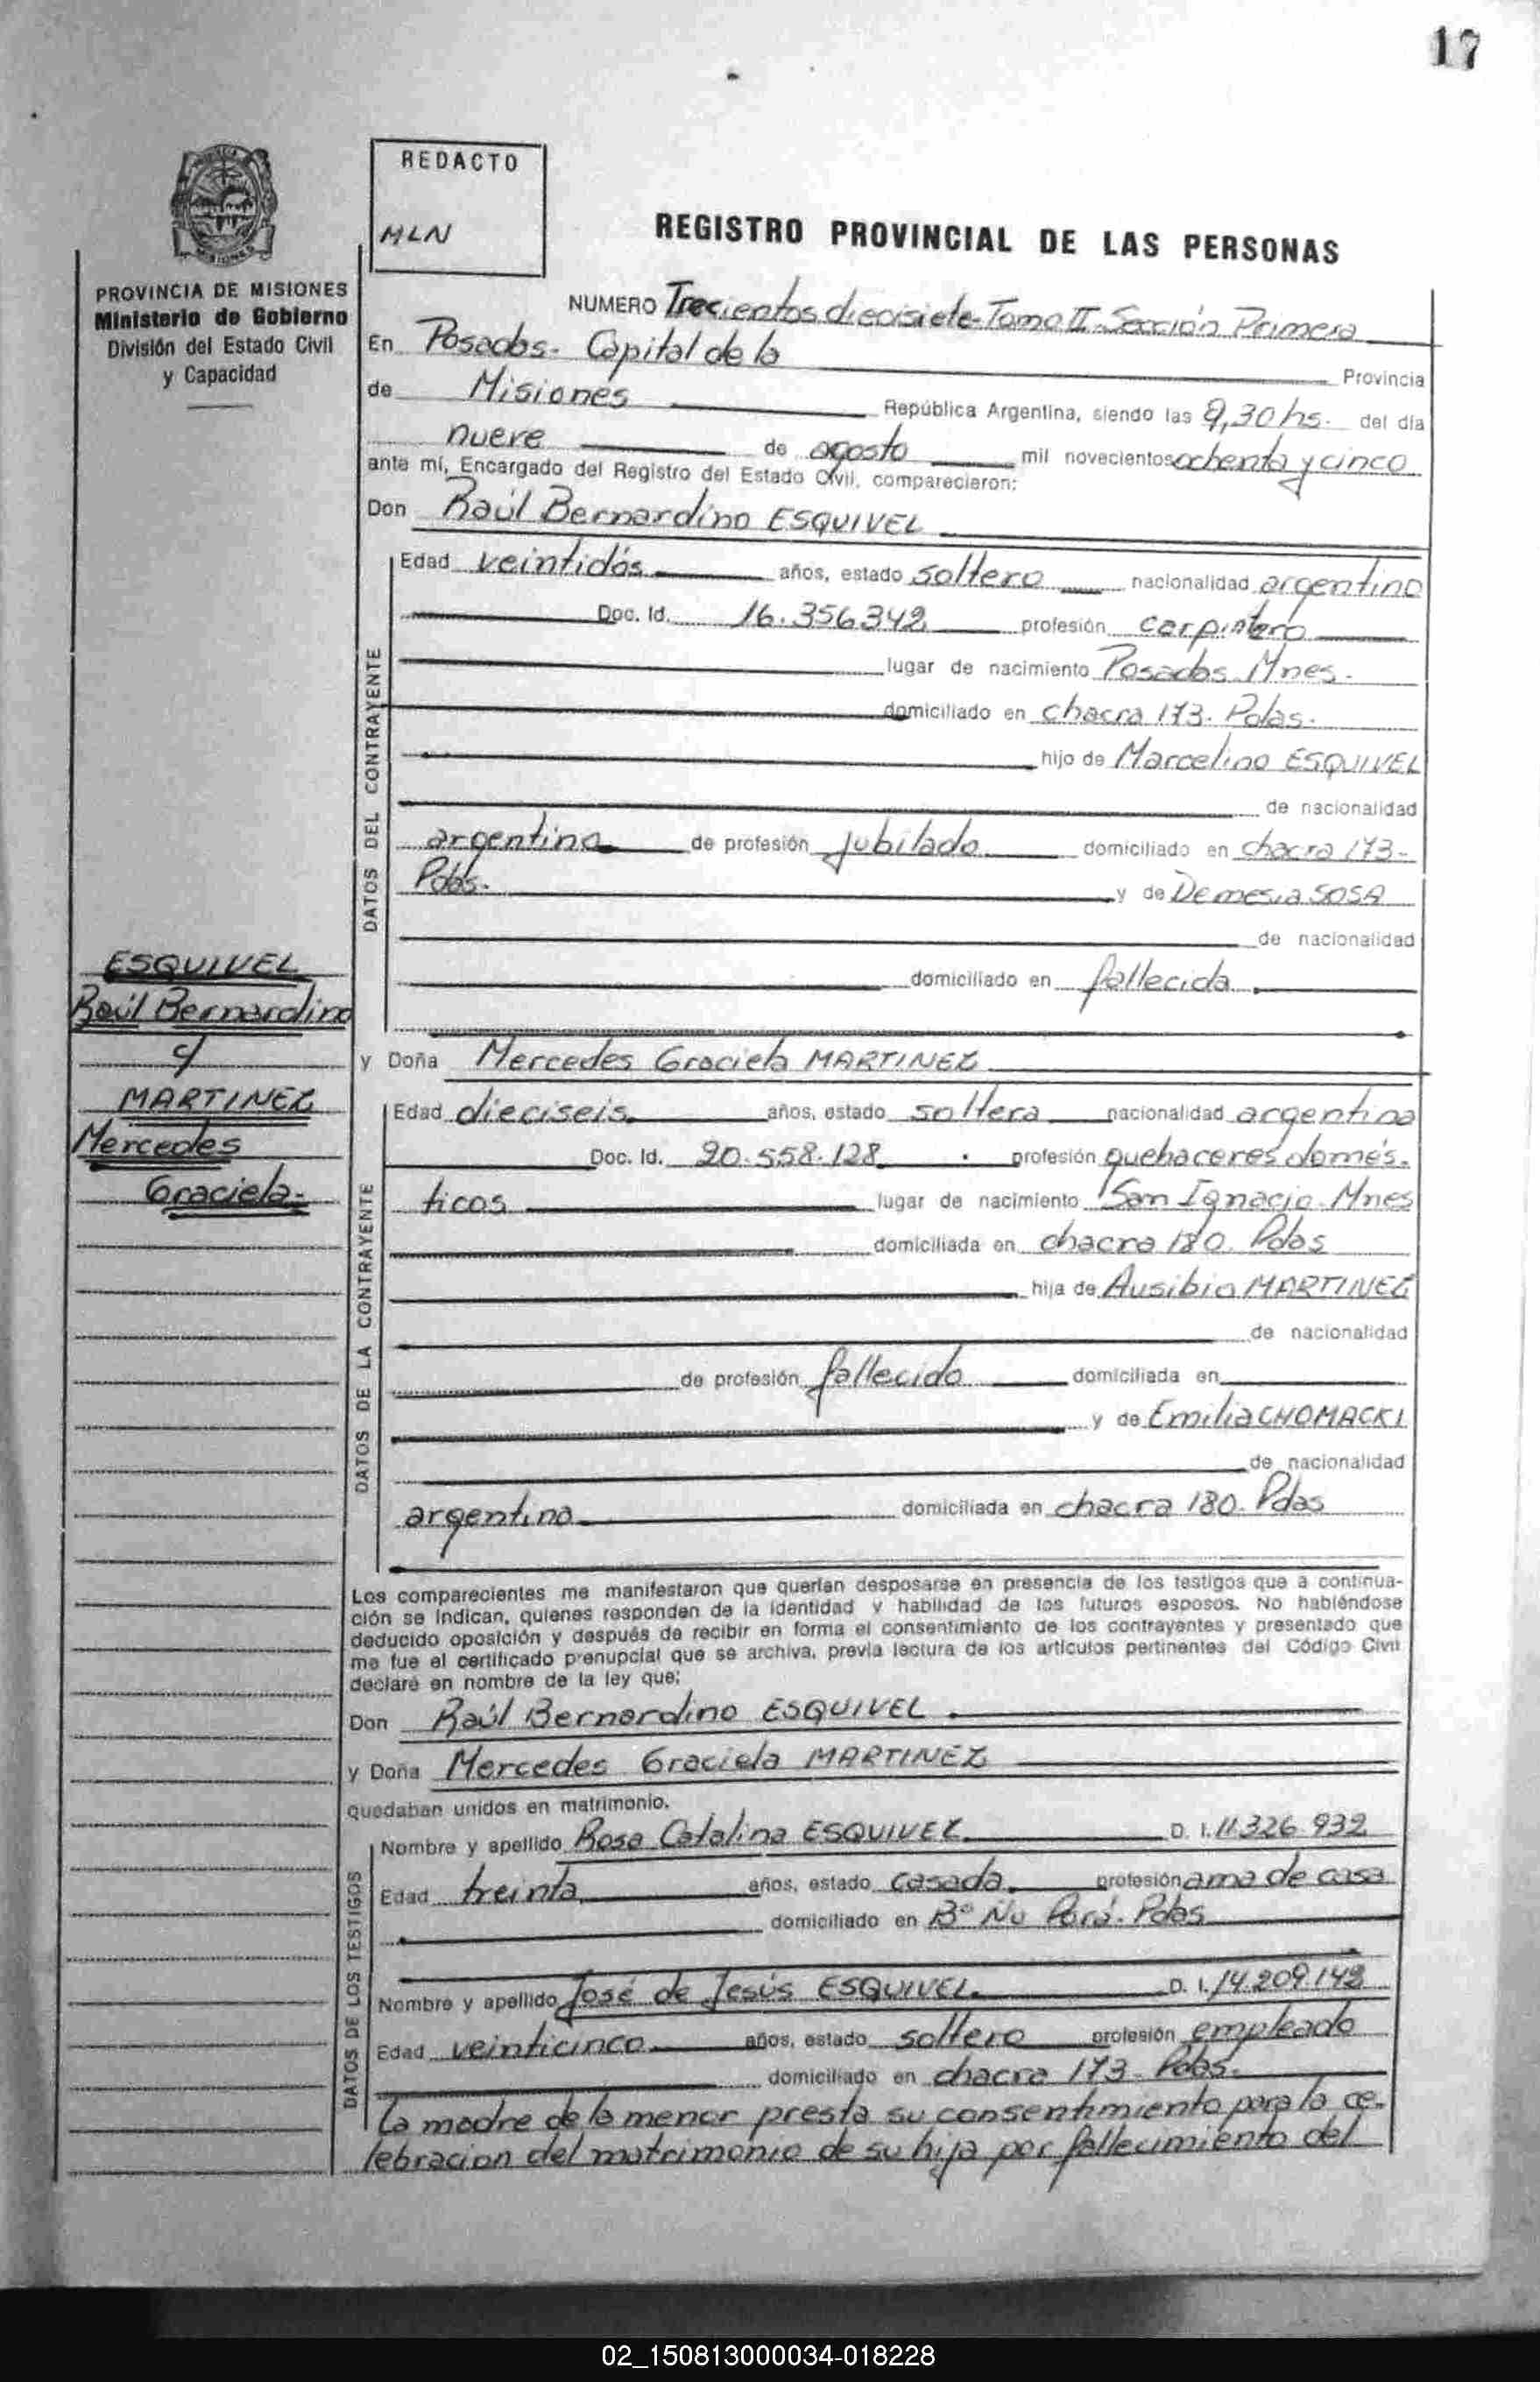 17
REDACTO
MLN
REGISTRO PROVINCIAL DE LAS PERSONAS
PROVINCIA DE MISIONES
Ministerio de Gobierno
División del Estado Civil
y Capacidad
NUMERO Trecientos diecisiete-Tomo II-Sección Primera
En Posadas- Capital de la Provincia
de Misiones República Argentina, siendo las 9,30 hs. del día
nueve de agosto mil novecientos ochenta y cinco
ante mí, Encargado del Registro del Estado Civil, comparecieron:
Don Raúl Bernardino ESQUIVEL
DATOS DEL CONTRAYENTE
Edad veintidós años, estado soltero nacionalidad argentino
Doc. Id. 16.356342 profesión carpintero
lugar de nacimiento Posadas Mnes.
domiciliado en chacra 173. Pdas.
hijo de Marcelino ESQUIVEL
de nacionalidad
argentino de profesión jubilado domiciliado en chacra 173-
Pdas. y de Demesia SOSA
de nacionalidad
domiciliado en fallecida
ESQUIVEL
Raúl Bernardino
y
MARTINEZ
Mercedes
Graciela-
y Doña Mercedes Graciela MARTINEZ
DATOS DE LA CONTRAYENTE
Edad dieciseis años, estado soltera nacionalidad argentina
Doc. Id. 20.558.128 profesión quehaceres domés-
ticos lugar de nacimiento San Ignacio-Mnes
domiciliada en chacra 180. Pdas
hija de Ausibio MARTINEZ
de nacionalidad
de profesión fallecido domiciliada en
y de Emilia CHOMACKI
de nacionalidad
argentina domiciliada en chacra 180- Pdas
Los comparecientes me manifestaron que querían desposarse en presencia de los testigos que a continua-
ción se indican, quienes responden de la identidad y habilidad de los futuros esposos. No habiéndose
deducido oposición y después de recibir en forma el consentimiento de los contrayentes y presentado que
me fue el certificado prenupcial que se archiva, previa lectura de los artículos pertinentes del Código Civil
declaré en nombre de la ley que:
Don Raúl Bernardino ESQUIVEL
y Doña Mercedes Graciela MARTINEZ
quedaban unidos en matrimonio.
DATOS DE LOS TESTIGOS
Nombre y apellido Rosa Catalina ESQUIVEL D. I. 11.326.932
Edad treinta años, estado casada profesión ama de casa
domiciliado en B° Nu Porá- Pdas
Nombre y apellido José de Jesús ESQUIVEL D. I. 14.209.142
Edad veinticinco años, estado soltero profesión empleado
domiciliado en chacra 173- Pdas.
La madre de la menor presta su consentimiento para la ce-
lebracion del matrimonio de su hija por fallecimiento del
02_150813000034-018228